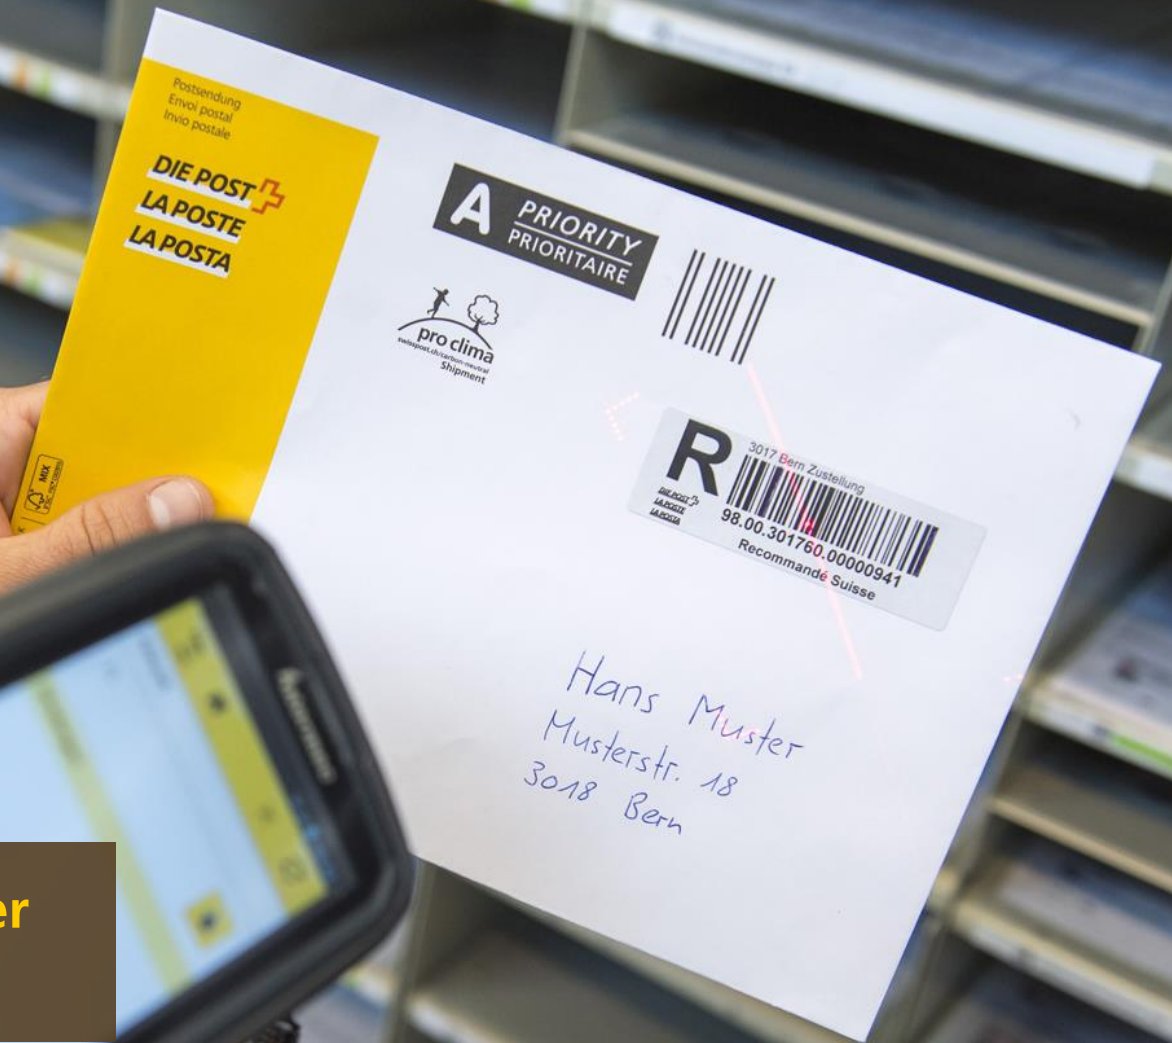 Postsendung
Envoi postal
Invio postale
DIE POST
LA POSTE
LA POSTA
A PRIORITY
PRIORITAIRE
pro clima
swisspost.ch/carbon-neutral
Shipment
R
3017 Bern Zustellung
DIE POST
LA POSTE
LA POSTA
98.00.301760.00000941
Recommandé Suisse
Hans Muster
Musterstr. 18
3018 Bern
MIX
er